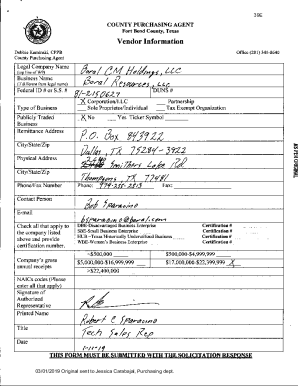 39E
COUNTY PURCHASING AGENT
Fort Bend County, Texas
Vendor Information
Debbie Kaminski, CPPB
County Purchasing Agent
Office (281) 341-8640
Legal Company Name
(top line of W9)
Boral CM Holdings, LLC
Business Name
(if different from legal name)
Boral Resources, LLC
Federal ID # or S.S. #
81-2150627
DUNS #
Type of Business
X Corporation/LLC
Partnership
Sole Proprietor/Individual
Tax Exempt Organization
Publicly Traded
Business
X No
Yes Ticker Symbol
Remittance Address
P.O. Box 843922
City/State/Zip
Dallas, TX 75284-3922
Physical Address
Smithers Lake Rd
City/State/Zip
Thompsons, TX 77481
Phone/Fax Number
Phone:
Fax:
Contact Person
Bob Sparacino
E-mail
bsparacino@boral.com
Check all that apply to
the company listed
above and provide
certification number.
DBE-Disadvantaged Business Enterprise
Certification #
SBE-Small Business Enterprise
Certification #
HUB-Texas Historically Underutilized Business
Certification #
WBE-Women's Business Enterprise
Certification #
Company's gross
annual receipts
<$500,000
$500,000-$4,999,999
$5,000,000-$16,999,999
$17,000,000-$22,399,999 X
>$22,400,000
NAICs codes (Please
enter all that apply)
Signature of
Authorized
Representative
Printed Name
Robert C Sparacino
Title
Tech Sales Rep
Date
THIS FORM MUST BE SUBMITTED WITH THE SOLICITATION RESPONSE
03/01/2019 Original sent to Jessica Carabajal, Purchasing dept.